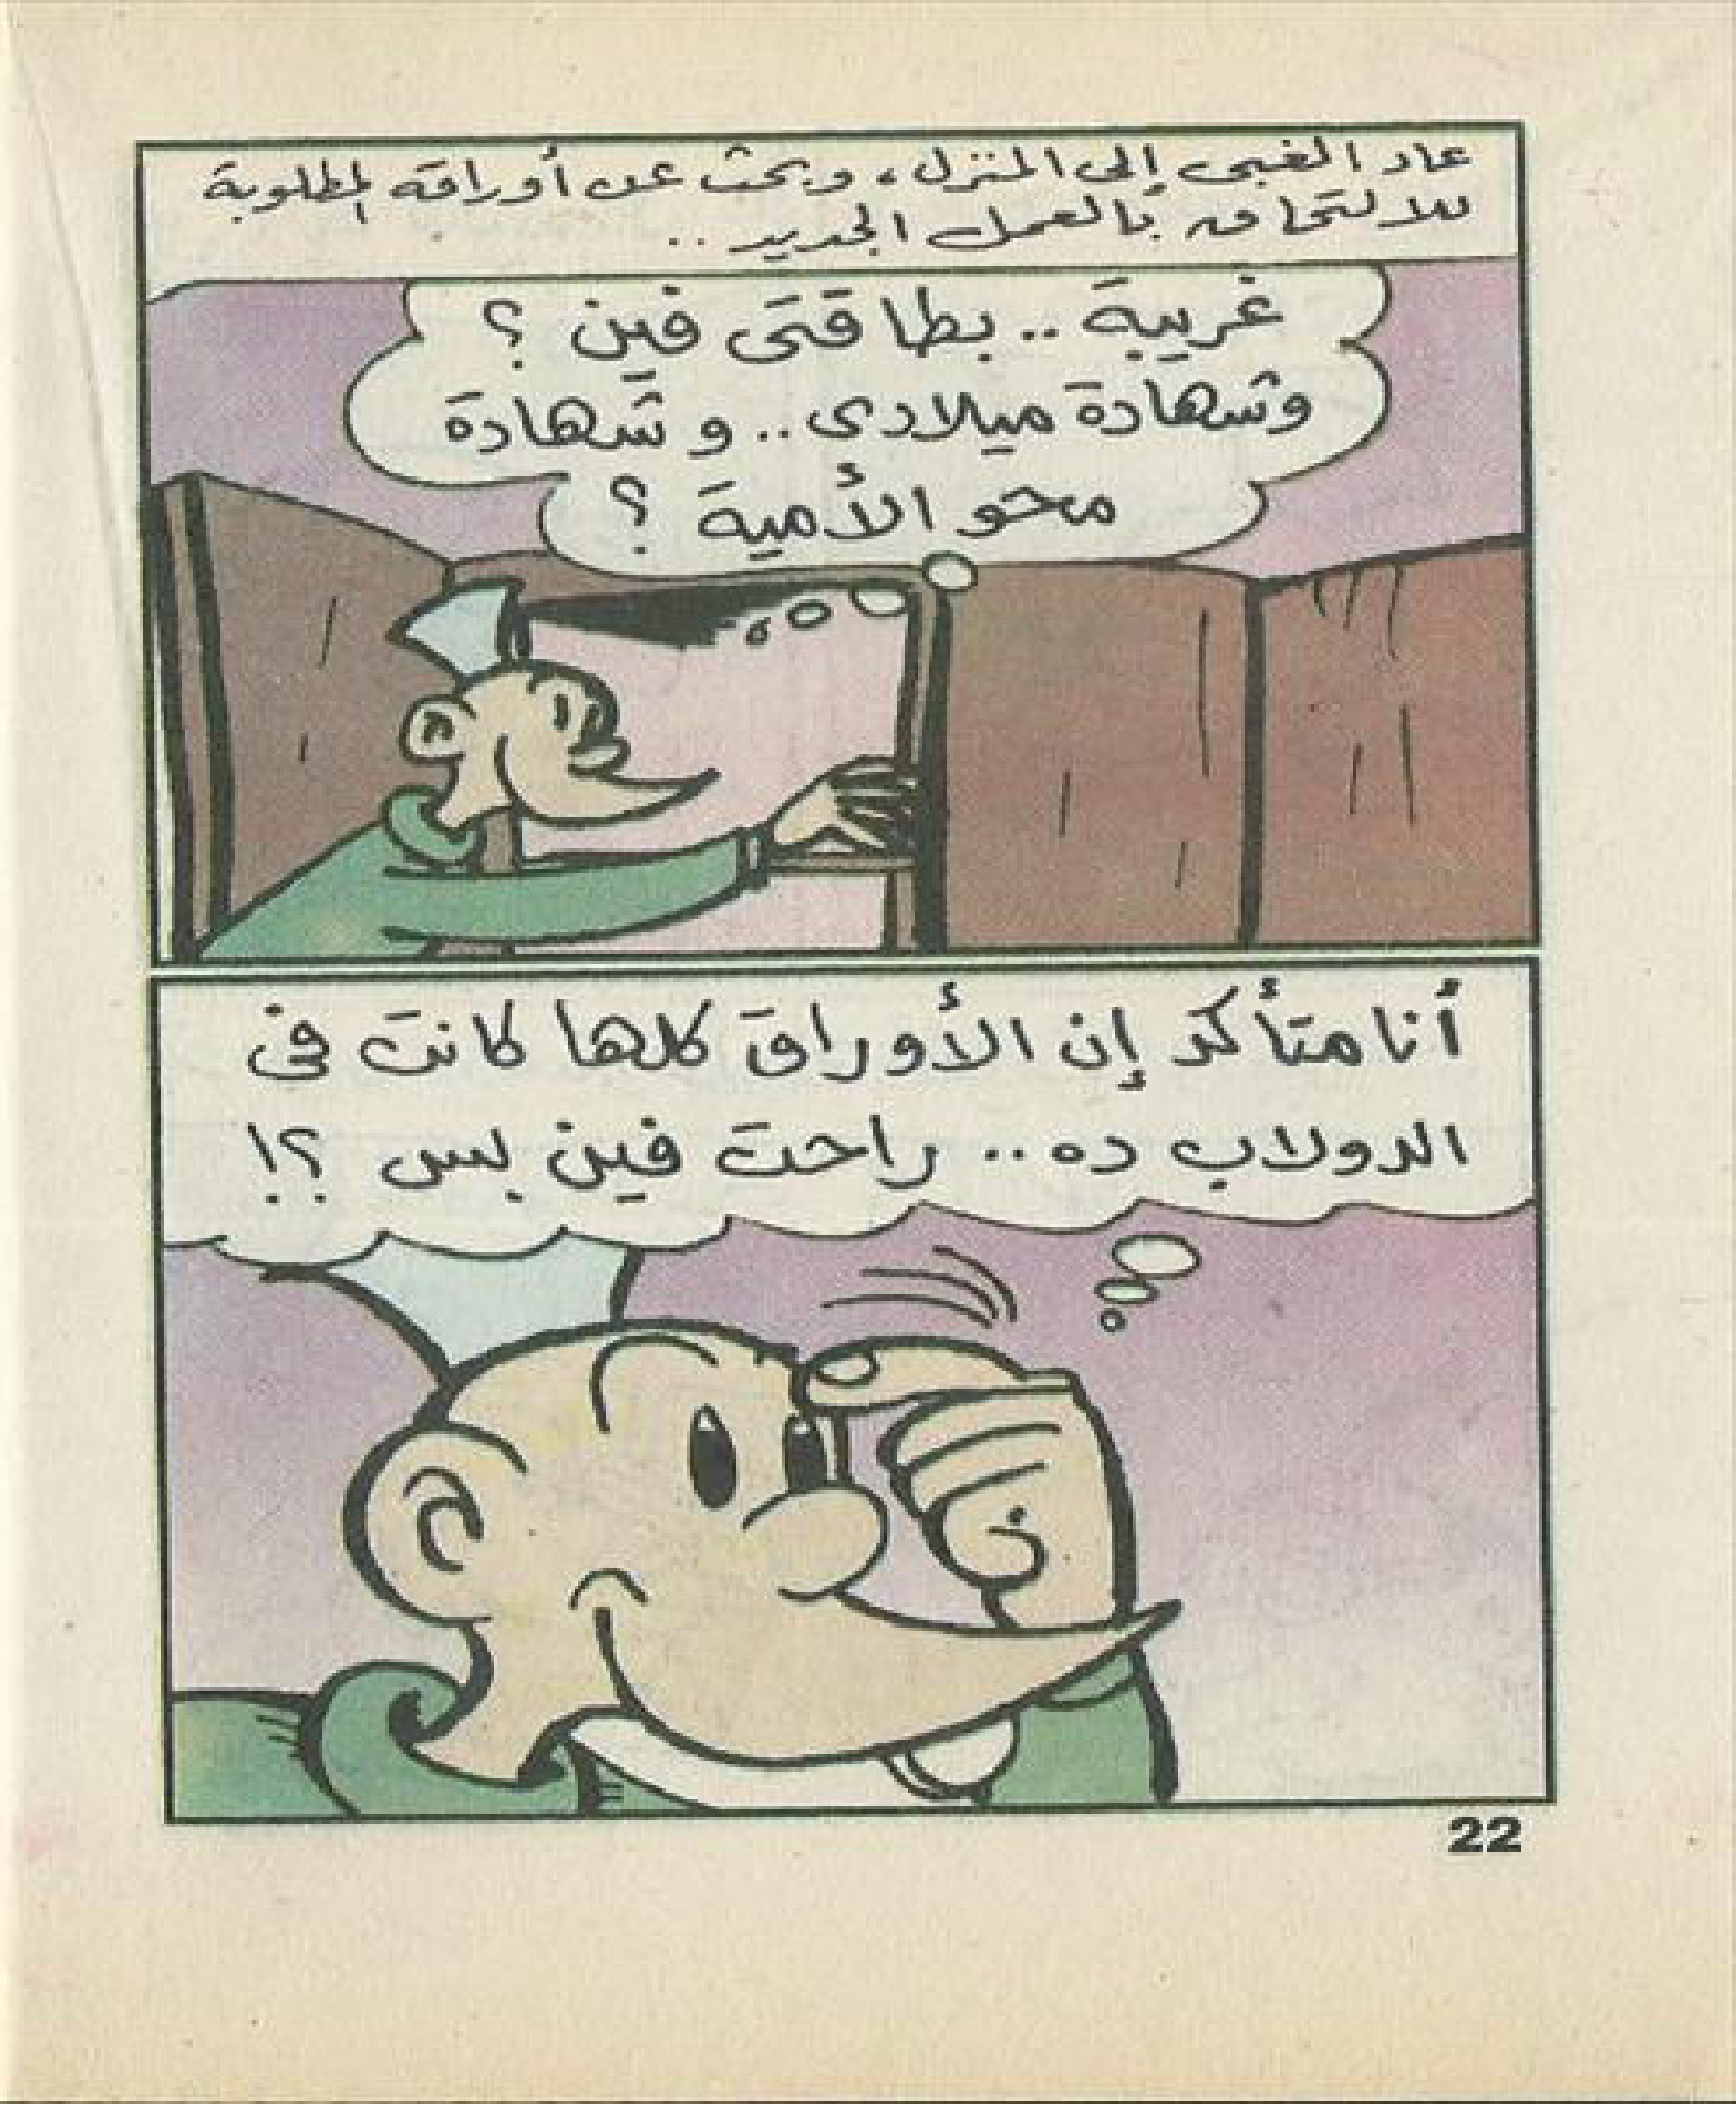 عاد الغبى إلى المنزل، وبحث عن أوراقه المطلوبة
للالتحاق بالعمل الجديد ..
غريبة .. بطاقتى فين ؟
وشهادة ميلادى .. و شهادة
محو الأمية ؟
أنا متأكد إن الأوراق كلها كانت فى
الدولاب ده .. راحت فين بس ؟!
22